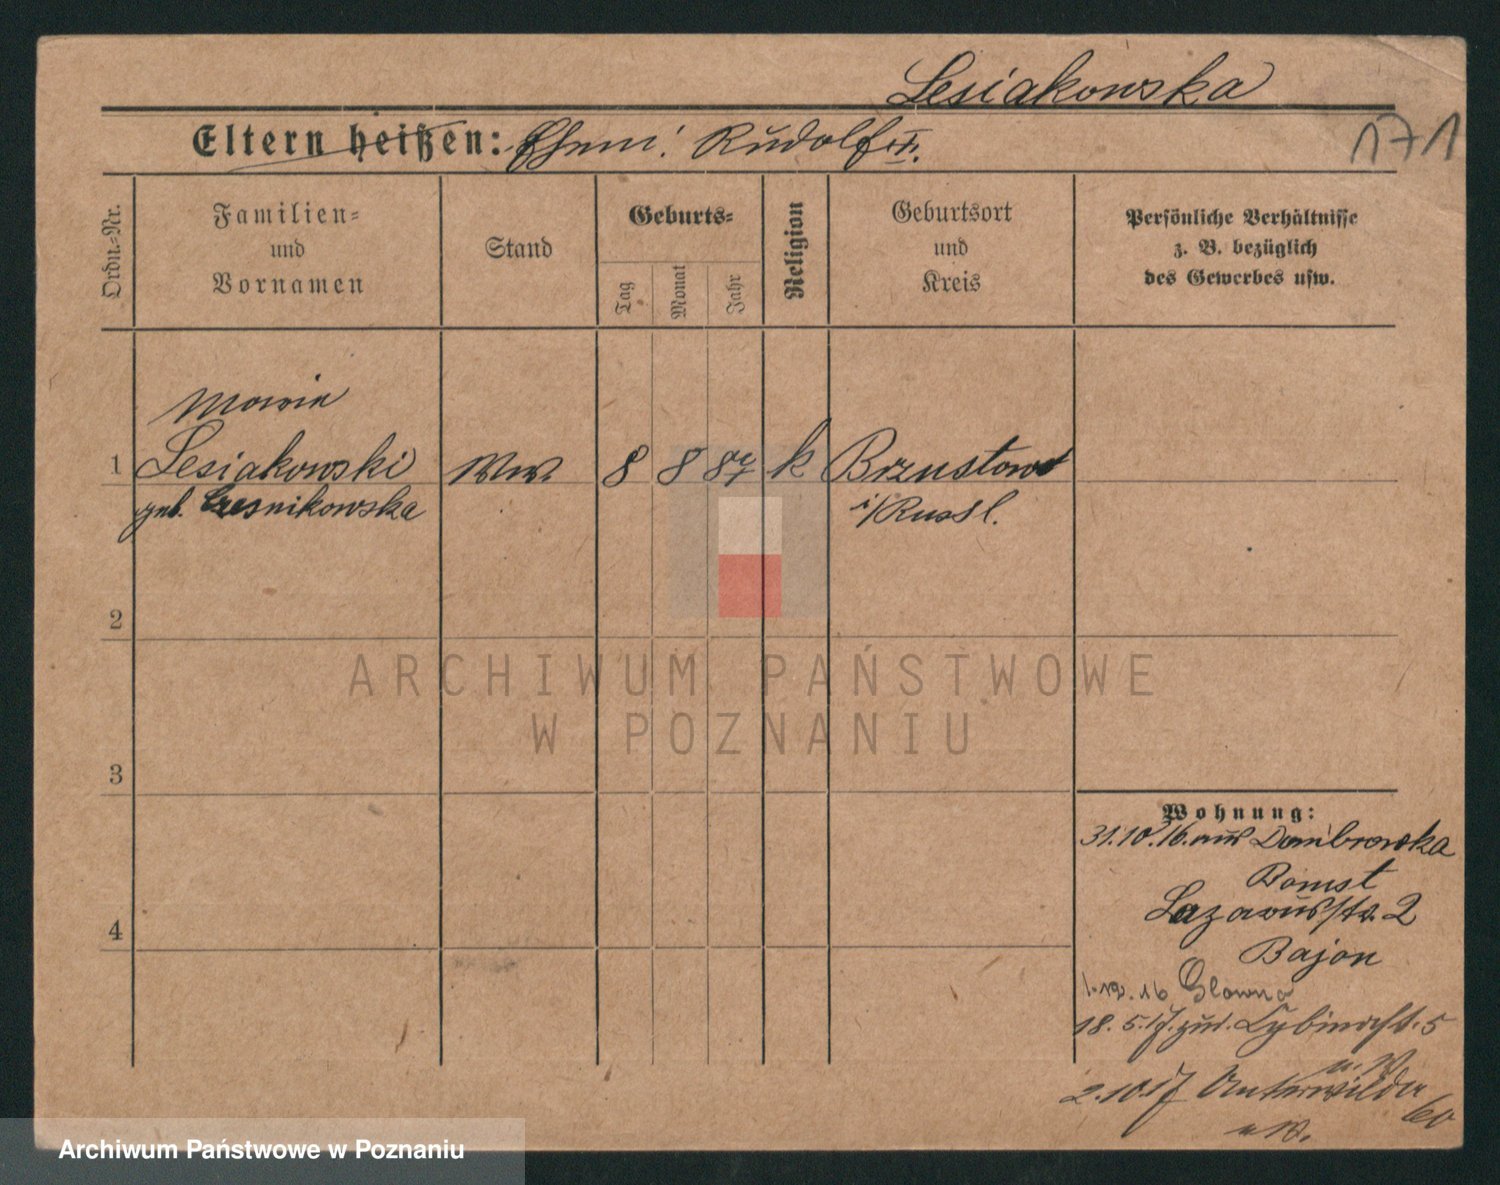 Lesiakowska
171
Eltern heißen: Ehem: Rudolf
Ordn.-Nr.
Familien-
und
Vornamen
Stand
Geburts-
Tag
Monat
Jahr
Religion
Geburtsort
und
Kreis
Persönliche Verhältnisse
z. B. bezüglich
des Gewerbes usw.
Maria
1 Lesiakowski Ww 8 8 87 k Brzustow
geb. Czesnikowska i/Russl.
2
3
4
Wohnung:
31.10.16. aus Dombrowka
Bomst
Lazarusstr. 2
Bajon
1.12.16 Glowno
18.5.17. zur. Cybinastr. 5
u. W.
2.10.17 Unterwilda
60
u W.
ARCHIWUM PAŃSTWOWE
W POZNANIU
Archiwum Państwowe w Poznaniu